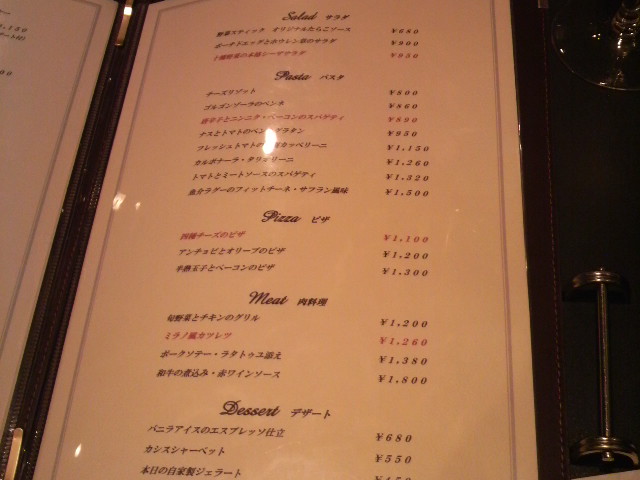 ,150
60
Salad サラダ
野菜スティック オリジナルたらこソース ¥680
ポーチドエッグとホウレン草のサラダ ¥900
¥950
Pasta パスタ
チーズリゾット ¥800
ゴルゴンゾーラのペンネ ¥860
唐辛子とニンニク・ベーコンのスパゲティ ¥890
ナスとトマトのペンネグラタン ¥950
フレッシュトマトの カッペリーニ ¥1,150
カルボナーラ・タリオリーニ ¥1,260
トマトとミートソースのスパゲティ ¥1,320
ラグーのフィットチーネ・サフラン風味 ¥1,500
Pizza ピザ
四種チーズのピザ ¥1,100
アンチョビとオリーブのピザ ¥1,200
半熟玉子とベーコンのピザ ¥1,300
Meat 肉料理
旬野菜とチキンのグリル ¥1,200
ミラノ風カツレツ ¥1,260
ポークソテー・ラタトゥユ添え ¥1,380
和牛の煮込み・赤ワインソース ¥1,800
Dessert デザート
バニラアイスのエスプレッソ仕立 ¥680
カシスシャーベット ¥550
本日の自家製ジェラート ¥450